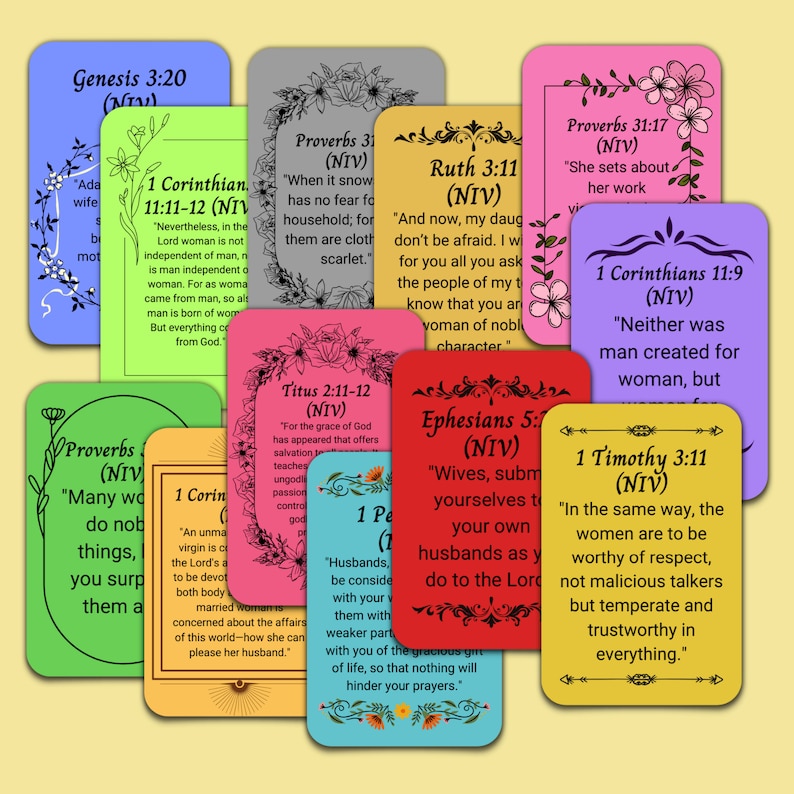 Genesis 3:20
(NIV)
"Ada
wife
s
be
mot
1 Corinthians
11:11-12 (NIV
"Nevertheless, in the
Lord woman is not
independent of man, n
is man independent o
woman. For as woma
came from man, so als
man is born of wom
But everything co
from God."
Proverbs 31
(NIV)
"When it snows
has no fear fo
household; for
them are cloth
scarlet."
Ruth 3:11
(NIV)
"And now, my daug
don't be afraid. I wi
for you all you ask
the people of my t
know that you are
woman of noble
character."
Proverbs 31:17
(NIV)
"She sets about
her work
1 Corinthians 11:9
(NIV)
"Neither was
man created for
woman, but
woman for
Proverbs 3
(NIV)
"Many wo
do nob
things, b
you surp
them a
1 Corin
"An unma
virgin is co
the Lord's a
to be devot
both body
married woman is
concerned about the affairs
of this world—how she can
please her husband."
Titus 2:11-12
(NIV)
"For the grace of God
has appeared that offers
salvation to all people. It
teaches
ungodli
passion
control
god
1 Pe
"Husbands,
be consider
with your w
them with
weaker part
with you of the gracious gift
of life, so that nothing will
hinder your prayers."
Ephesians 5:2
(NIV)
"Wives, subm
yourselves to
your own
husbands as y
do to the Lord
1 Timothy 3:11
(NIV)
"In the same way, the
women are to be
worthy of respect,
not malicious talkers
but temperate and
trustworthy in
everything."